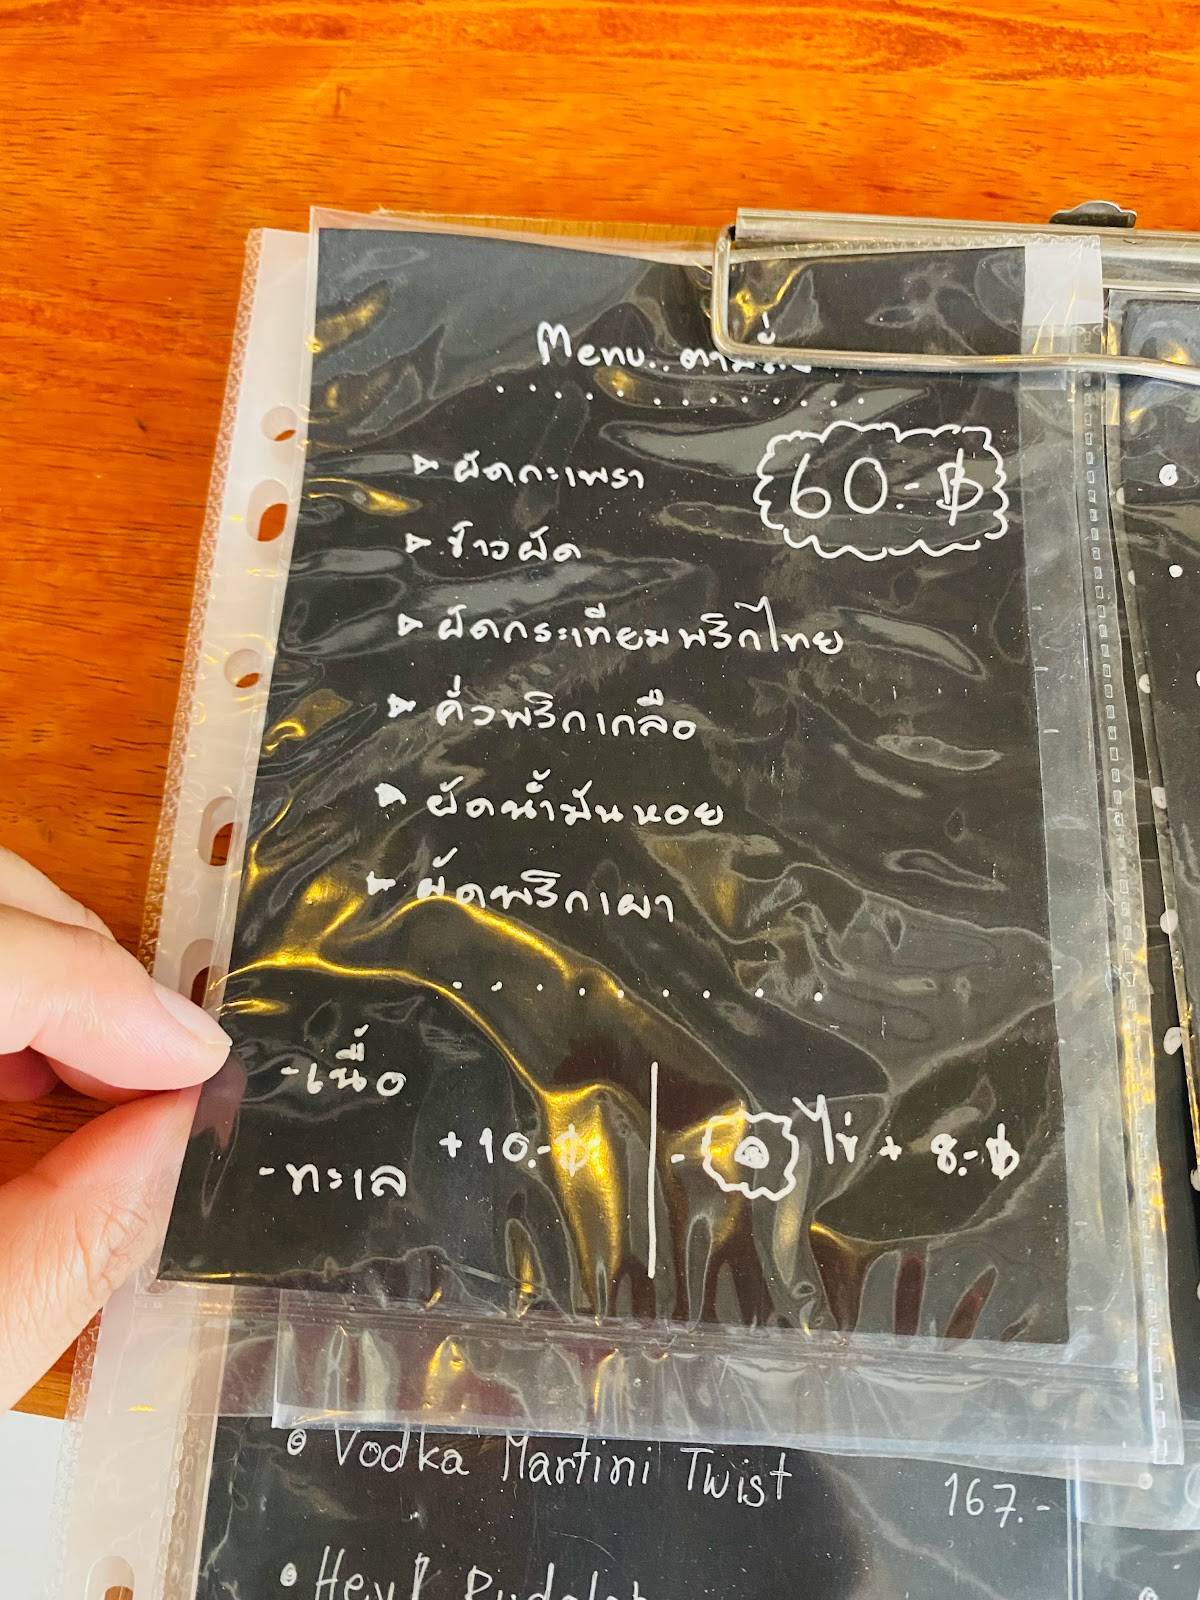 Menu..
60.-฿
▸ ผัดกะเพรา
▸ ข้าวผัด
▸ ผัดกระเทียมพริกไทย
▸ คั่วพริกเกลือ
▸ ผัดน้ำมันหอย
▸ ผัดพริกเผา
- เนื้อ
- ทะเล
+ 10.-฿
- ไข่ + 8.-฿
Vodka Martini Twist
167.-
Hey!